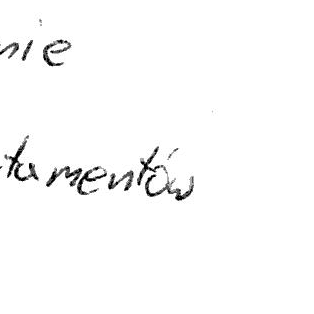 nie
tamentów